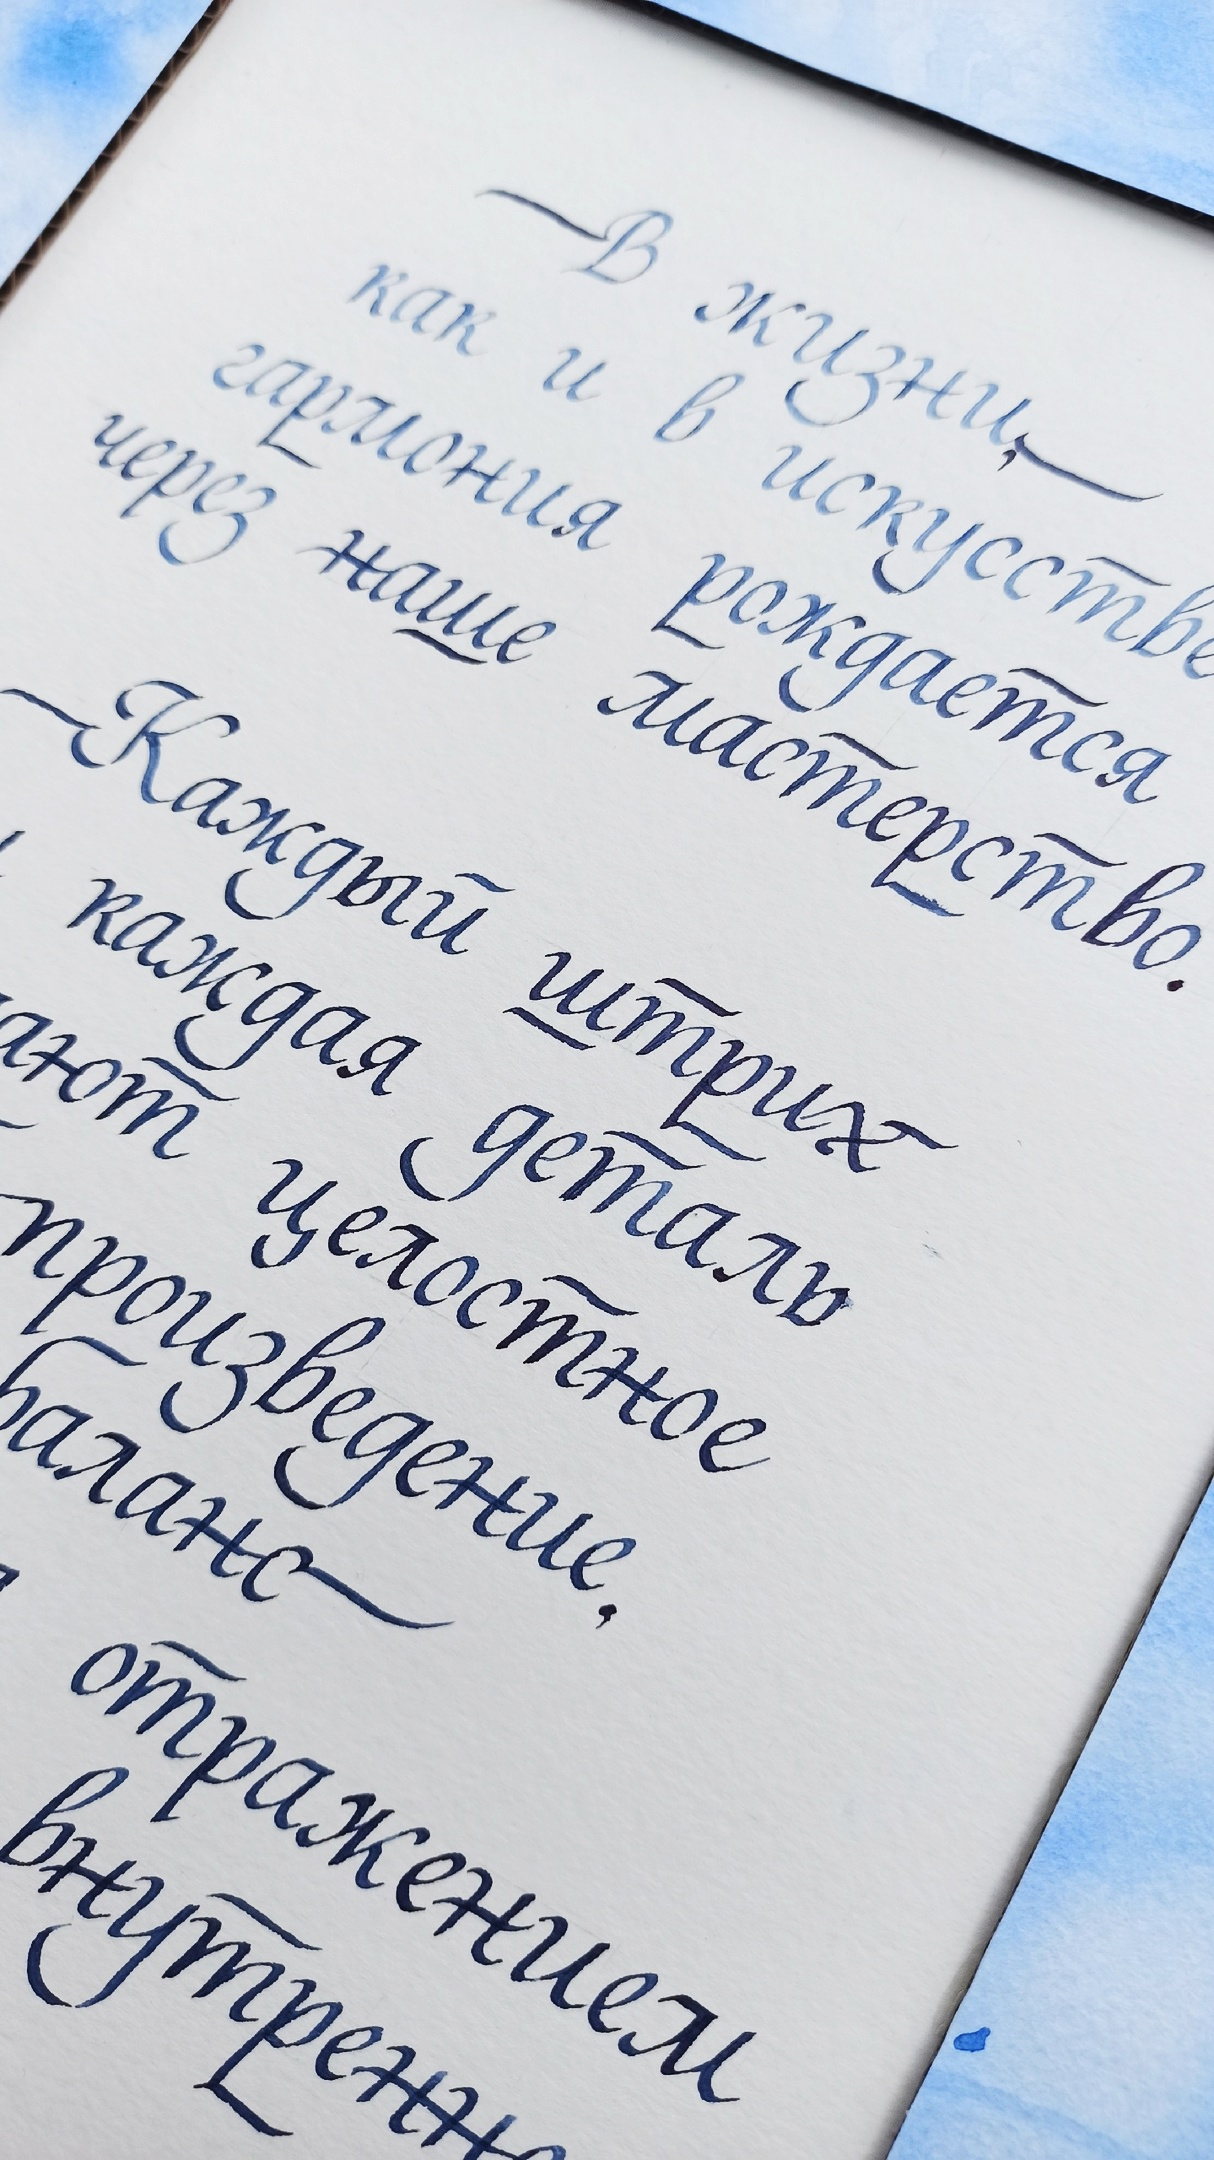 В жизни,
как и в искусстве
гармония рождается
через наше мастерство.
Каждый штрих
каждая деталь
целостное
произведение.
баланс
отражением